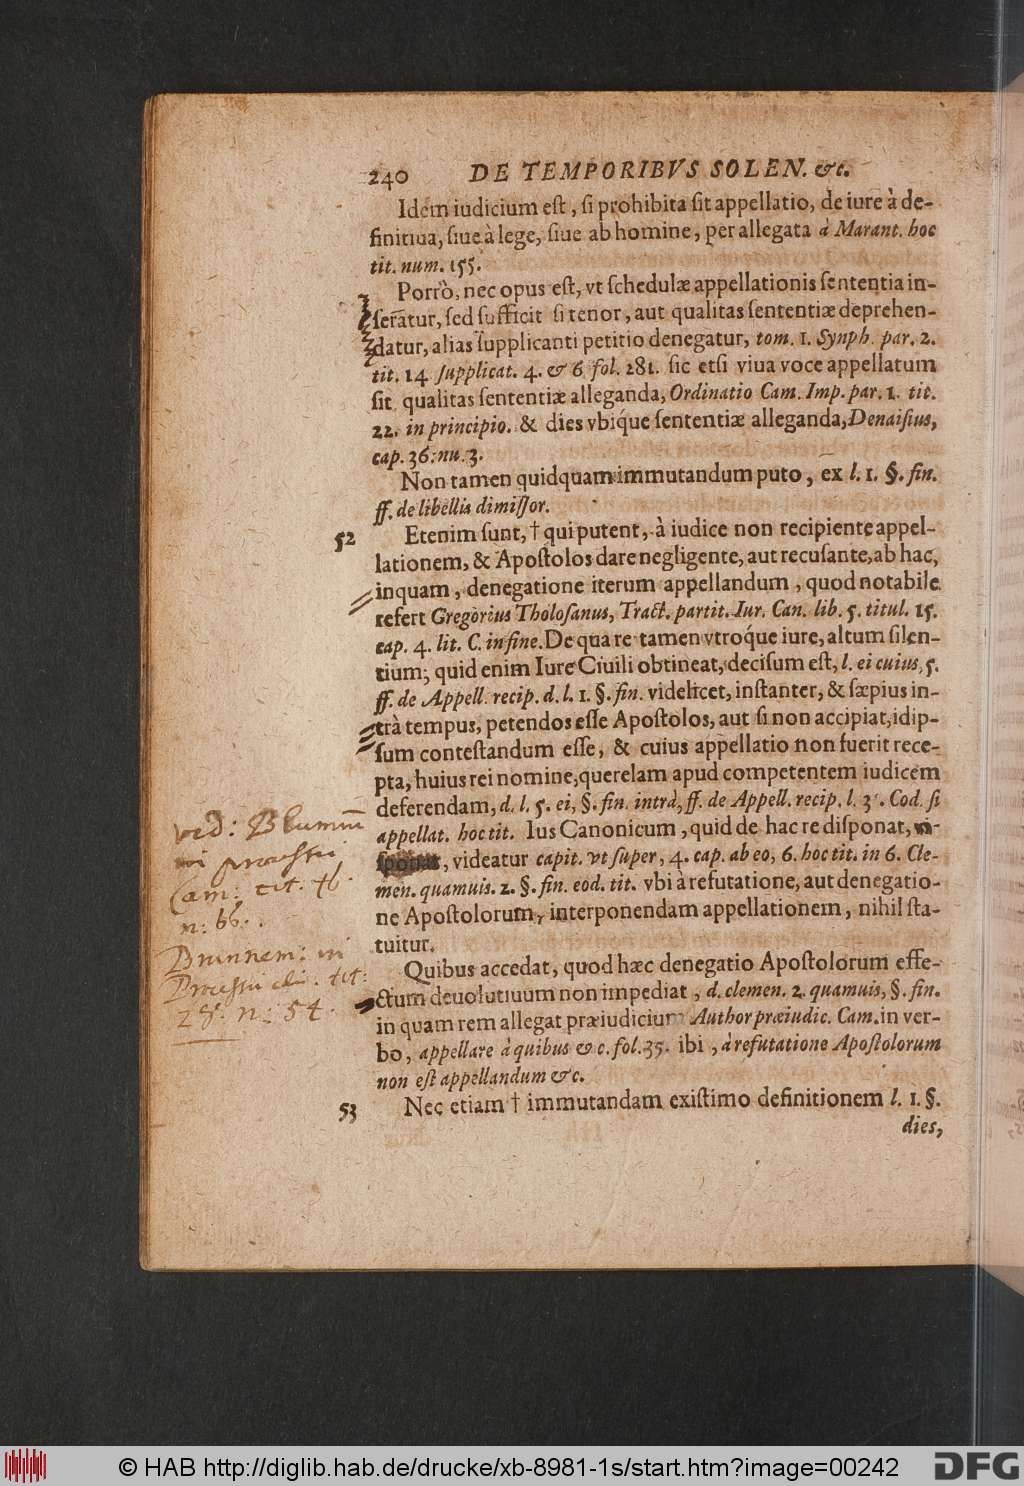 240 DE TEMPORIBVS SOLEN. &c.
Idem iudicium eſt, ſi prohibita ſit appellatio, de iure à de-
finitiua, ſiue à lege, ſiue ab homine, per allegata à Marant. hoc
tit. num. 155.
Porrò, nec opus eſt, vt ſchedulæ appellationis ſententia in-
ſeratur, ſed ſufficit ſi tenor, aut qualitas ſententiæ deprehen-
datur, alias ſupplicanti petitio denegatur, tom. 1. Synph. par. 2.
tit. 14 ſupplicat. 4. & 6 fol. 281. ſic etſi viua voce appellatum
ſit qualitas ſententiæ alleganda, Ordinatio Cam. Imp. par. 1. tit.
22. in principio. & dies vbiq́ue ſententiæ alleganda, Denaiſius,
cap. 36. nu. 3.
Non tamen quidquam immutandum puto, ex l. 1. §. fin.
ff. de libellis dimiſſor.
52 Etenim ſunt, † qui putent, à iudice non recipiente appel-
lationem, & Apoſtolos dare negligente, aut recuſante, ab hac,
inquam, denegatione iterum appellandum, quod notabile
refert Gregorius Tholoſanus, Tract. partit. Iur. Can. lib. 5. titul. 15.
cap. 4. lit. C. in fine. De qua re tamen vtroq́ue iure, altum ſilen-
tium; quid enim Iure Ciuili obtineat, deciſum eſt, l. ei cuius, 5.
ff. de Appell. recip. d. l. 1. §. fin. videlicet, inſtanter, & ſæpius in-
trà tempus, petendos eſſe Apoſtolos, aut ſi non accipiat, idip-
ſum conteſtandum eſſe, & cuius appellatio non fuerit rece-
pta, huius rei nomine, querelam apud competentem iudicem
deferendam, d. l. 5. ei, §. fin. intrà, ff. de Appell. recip. l. 3. Cod. ſi
appellat. hoc tit. Ius Canonicum, quid de hac re diſponat,
videatur capit. vt ſuper, 4. cap. ab eo, 6. hoc tit. in 6. Cle-
men. quamuis. 2. §. fin. eod. tit. vbi à refutatione, aut denegatio-
ne Apoſtolorum, interponendam appellationem, nihil ſta-
tuitur.
Quibus accedat, quod hæc denegatio Apoſtolorum effe-
ctum deuolutiuum non impediat, d. clemen. 2. quamuis, §. fin.
in quam rem allegat præiudicium Author præiudic. Cam. in ver-
bo, appellare à quibus & c. fol. 35. ibi, à refutatione Apoſtolorum
non eſt appellandum &c.
53 Nec etiam † immutandam exiſtimo definitionem l. 1. §.
dies,
ved: Blumm
in processu
Cam: tit. 76.
n: 66.
Brunnem: in
Processu civ. tit:
28. n: 54.
© HAB http://diglib.hab.de/drucke/xb-8981-1s/start.htm?image=00242
DFG